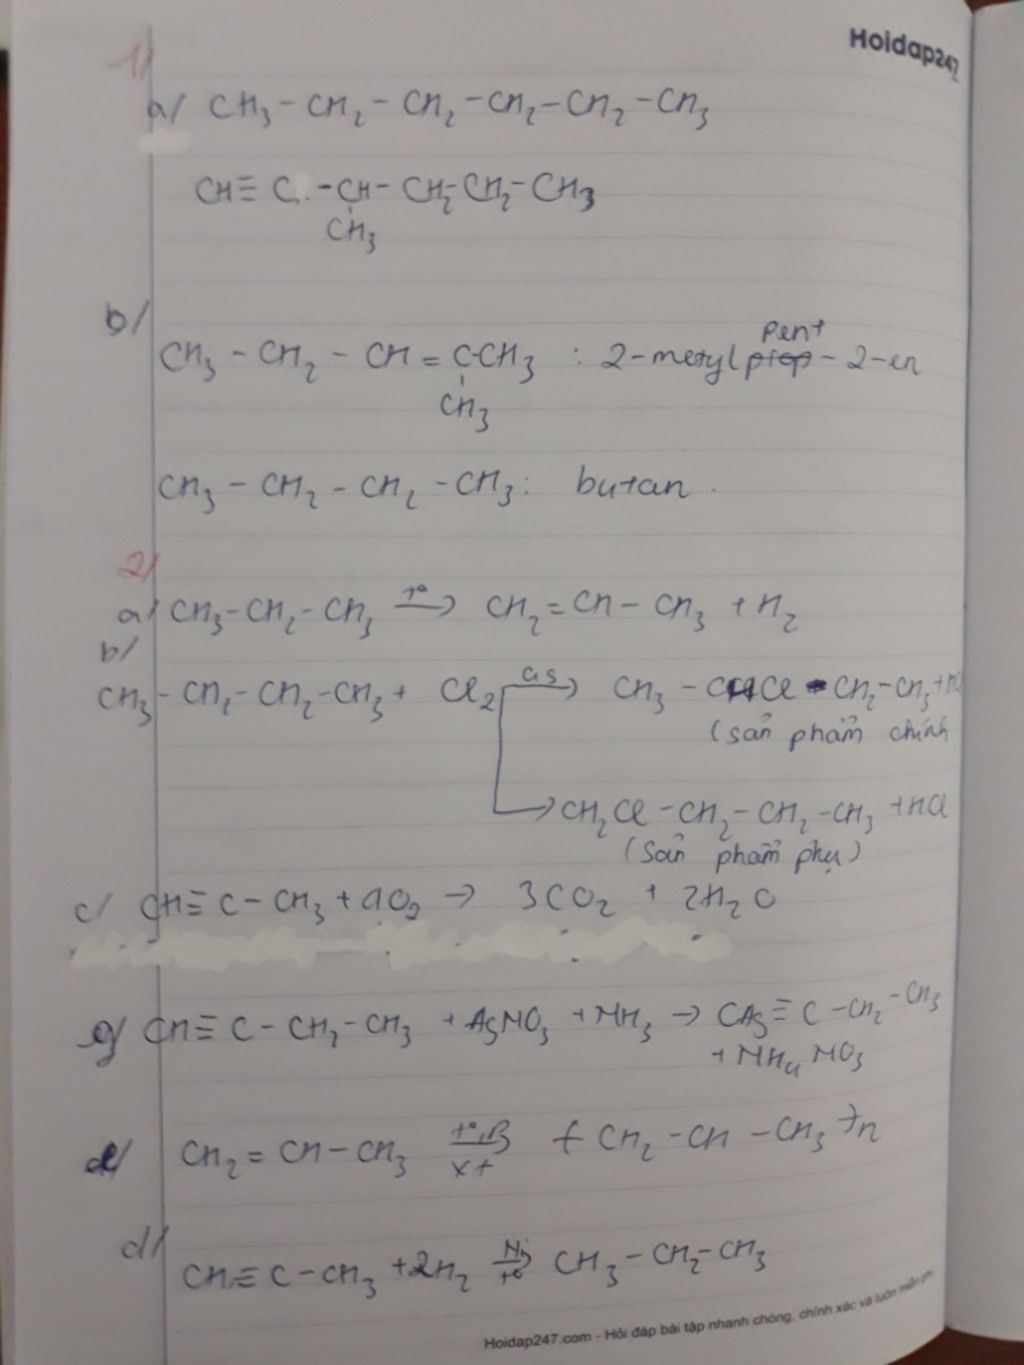 Hoidap247
1/
a/ CH₃ - CH₂ - CH₂ - CH₂ - CH₂ - CH₃
CH ≡ C - CH - CH₂ - CH₂ - CH₃
CH₃
b/
pent
CH₃ - CH₂ - CH = C-CH₃ : 2-metyl prop - 2-en
CH₃
CH₃ - CH₂ - CH₂ - CH₃ : butan.
2/
a/ CH₃-CH₂-CH₃ t° → CH₂ = CH - CH₃ + H₂
b/
CH₃ - CH₂ - CH₂ - CH₃ + Cl₂ as → CH₃ - CHCl - CH₂ - CH₃ + HCl
(sản phẩm chính
→ CH₂Cl - CH₂ - CH₂ - CH₃ + HCl
(Sản phẩm phụ)
c/ CH ≡ C - CH₃ + 4O₂ → 3CO₂ + 2H₂O
g/ CH ≡ C - CH₂ - CH₃ + AgNO₃ + NH₃ → CAg ≡ C - CH₂ - CH₃
+ NH₄NO₃
e/ CH₂ = CH - CH₃ t°, p xt ( CH₂ - CH - CH₃ )n
d/
CH ≡ C - CH₃ + 2H₂ Ni t° → CH₃ - CH₂ - CH₃
Hoidap247.com - Hỏi đáp bài tập nhanh chóng, chính xác và luôn miễn phí